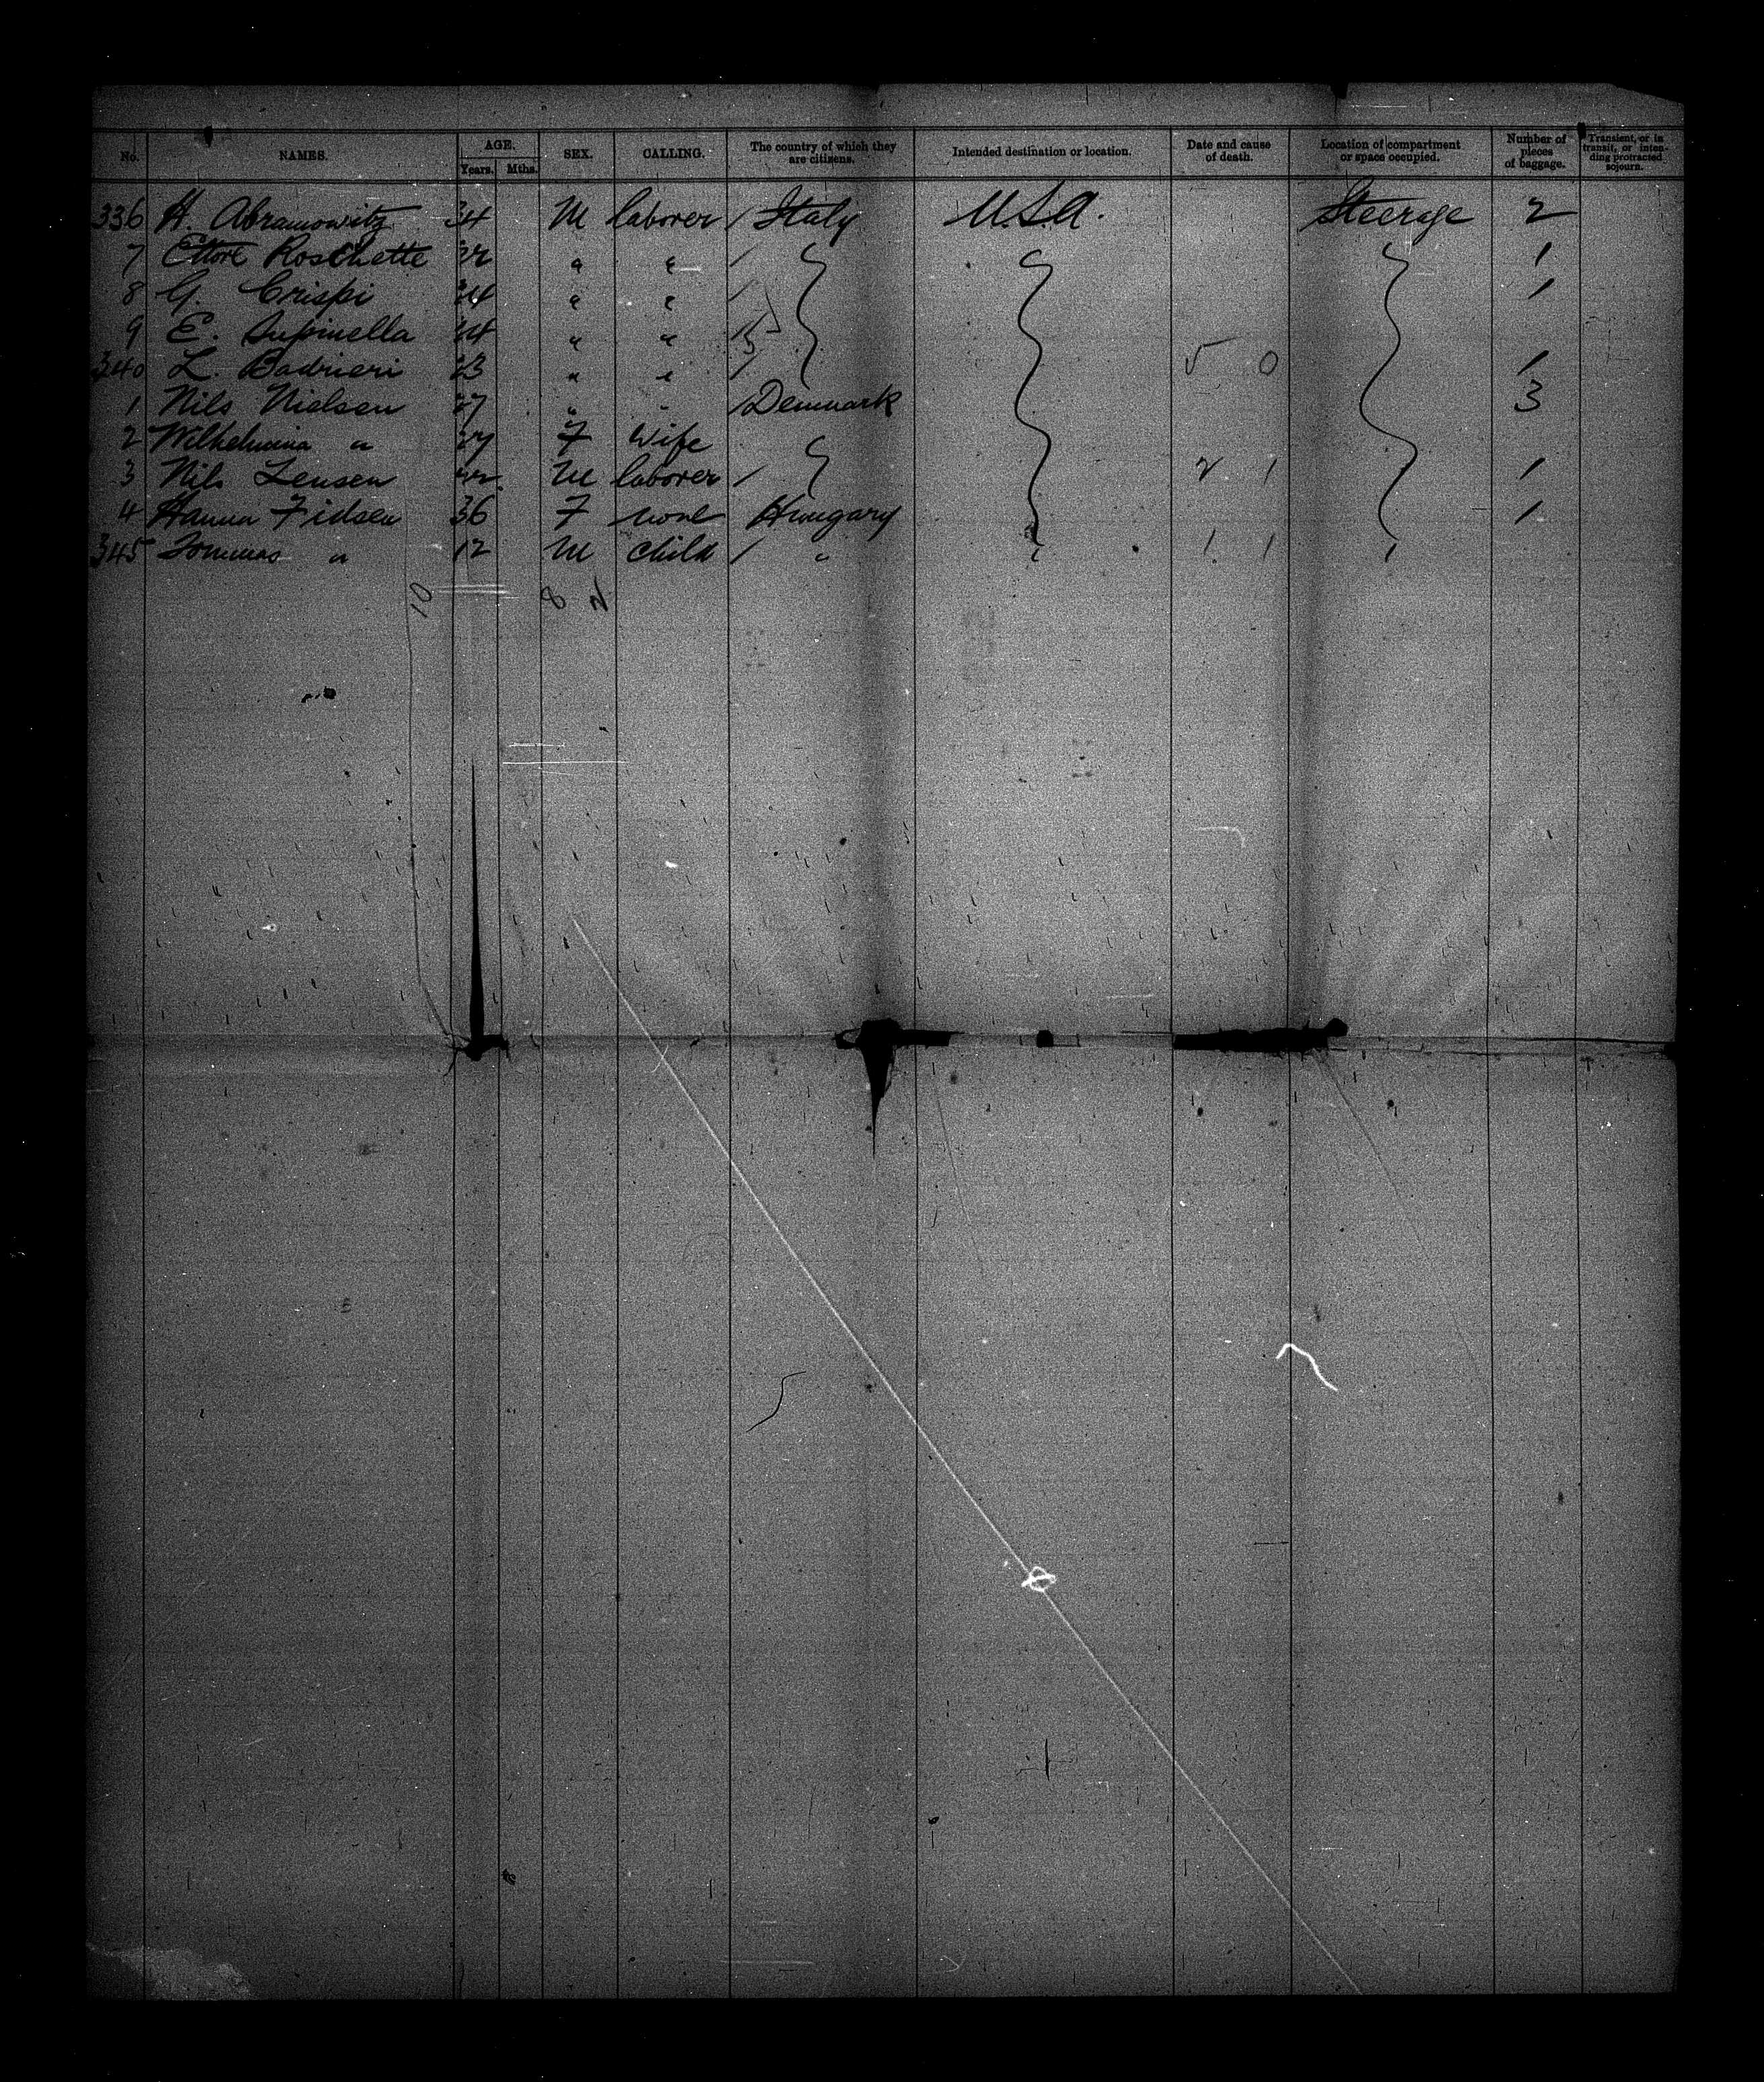 No. NAMES. AGE. Years. Mths. SEX. CALLING. The country of which they are citizens. Intended destination or location. Date and cause of death. Location of compartment or space occupied. Number of pieces of baggage. Transient, or in transit, or intending protracted sojourn.
336 H. Abramowitz 34 M laborer / Italy U.S.A. Steerage 2
7 Ettore Roschette " " / 1
8 G. Crispi " " / 1
9 E. Supinella 24 " "
340 L. Badrieri 23 " " / 5 0 1
1 Nils Nielsen 27 " " / Denmark 3
2 Wilhelmina " 27 F Wife
3 Nils Jensen M laborer / 2 1 1
4 Hanna Fidsen 36 F none Hungary 1
345 Tommas " 12 M child / " " 1 1 "
10 8 2